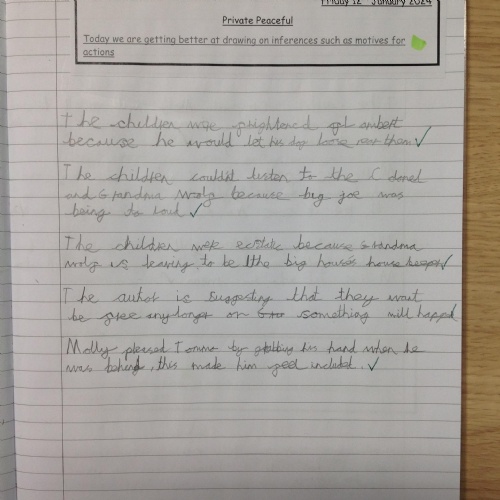 Friday 12th January 2024
Private Peaceful
Today we are getting better at drawing on inferences such as motives for
actions
The children were frightened of lambert
because he would let his dog loose near them
The children couldn't listen to the Colonel
and Grandma Wolf because big joe was
being to loud
The children were ecstatic because Grandma
wolf is leaving to be the big house's house keeper
The author is suggesting that they wont
be free any longer or something will happed
Molly pleased Tommo by grabbing his hand when he
was behind, this made him feel included.